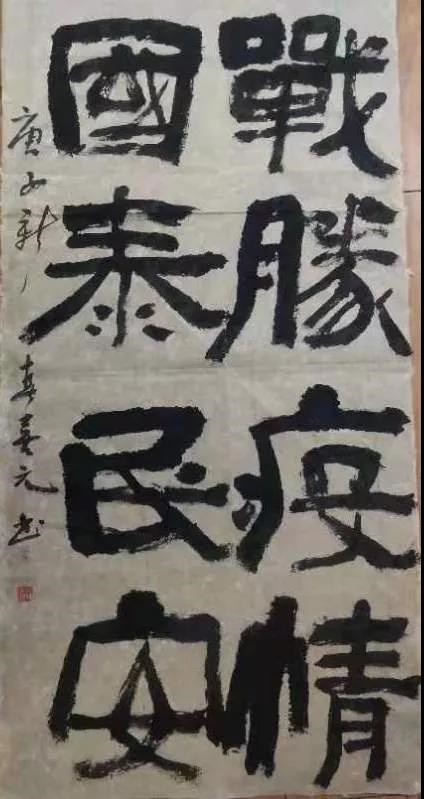 戰勝疫情
國泰民安
庚子新春 善元书